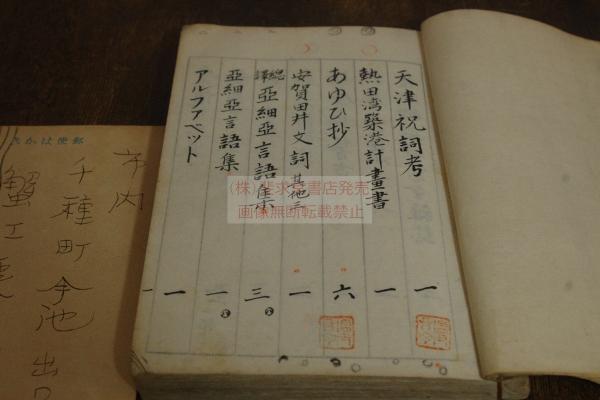 天津祝詞考 一
熱田湾築港計畫書 一
あゆひ抄 六
安賀田井文詞 其他三 一
亞細亞言語集 三
亞細亞言語集 一
アルファベット 一
(株)求
書店発売
画像無断転載禁止
郵便はかき
市内
千種町今池
蟹工